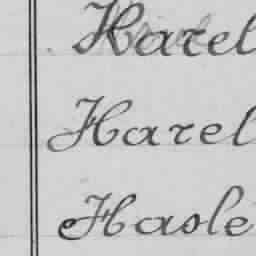 Harel
Harel
Hasle